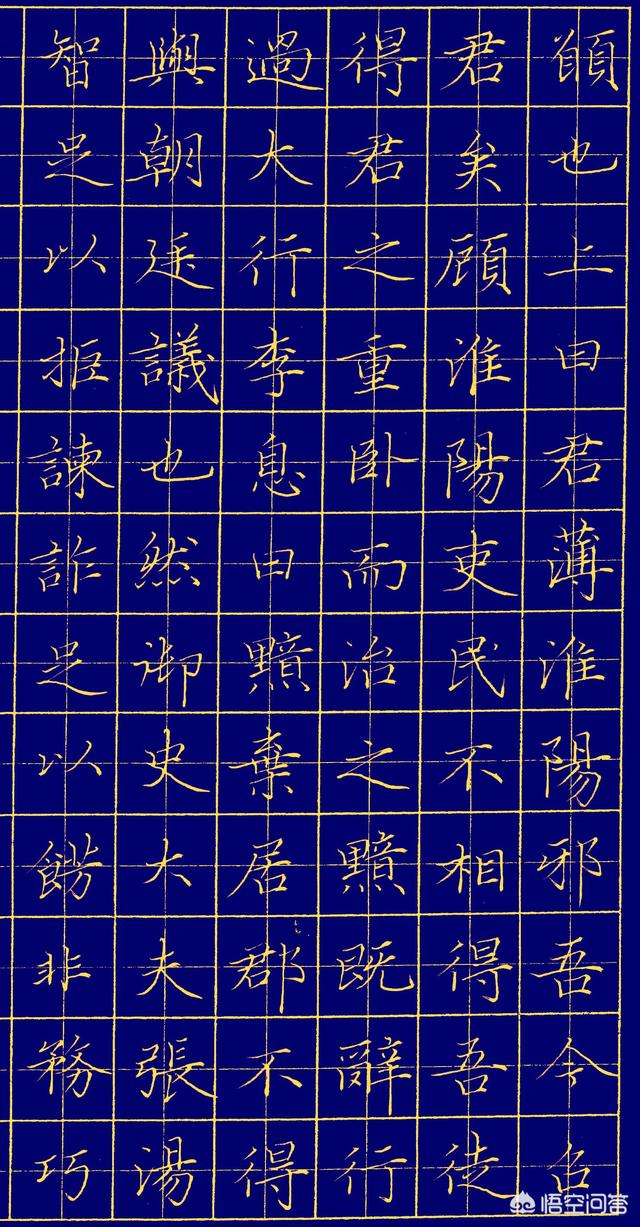 願也上曰君薄淮陽邪吾今召
君矣顧淮陽吏民不相得吾徒
得君之重卧而治之黯既辭行
過大行李息曰黯棄居郡不得
與朝廷議也然御史大夫張湯
智足以拒諫詐足以飾非務巧
悟空问答